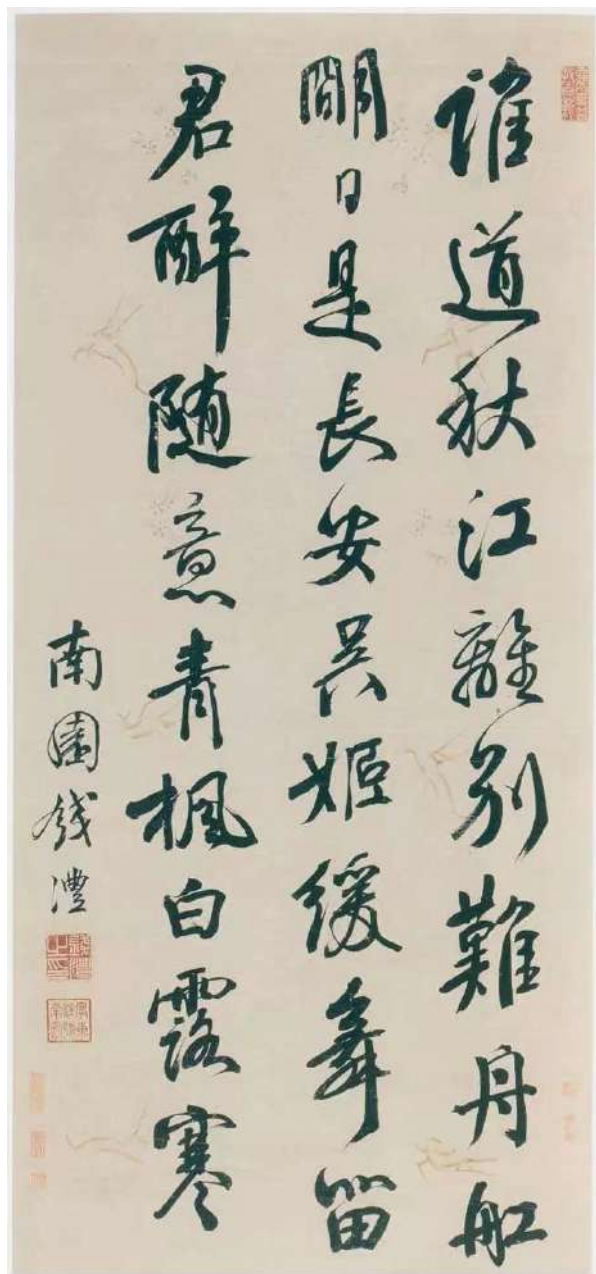 誰道秋江離別難舟舡
朙日是長安吳姬緩舞留
君醉随意青楓白露寒
南園錢灃